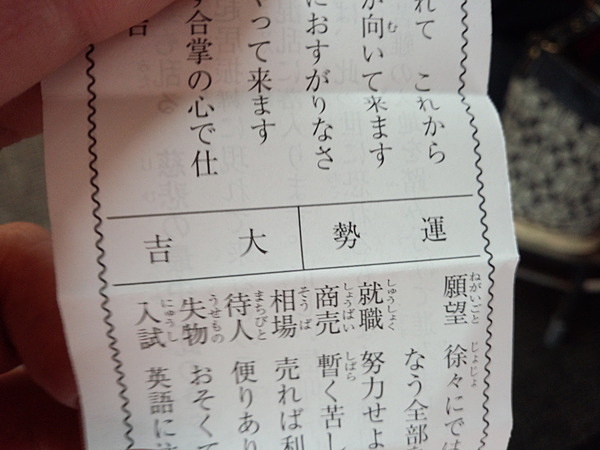 れて これから
が向いて来ます
む
におすがりなさ
って来ます
合掌の心で仕
運勢
大吉
願望 徐々にでは
ねがいごと じょじょ
なう全部
就職 努力せよ
しゅうしょく
商売 暫く苦し
しょうばい しばら
相場 売れば利
そうば
待人 便りあり
まちびと
失物 おそくて
うせもの
入試 英語に
にゅうし